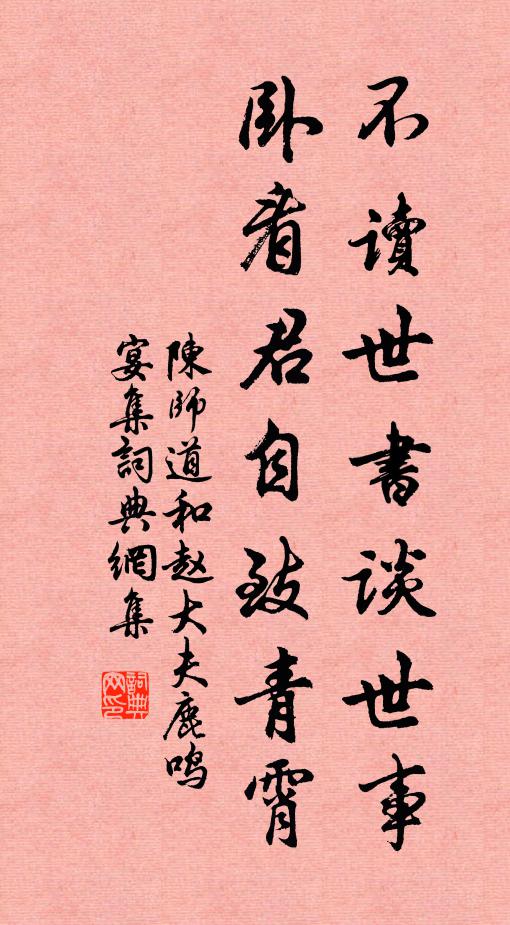 不讀世書談世事
卧看君自致青霄
陳師道和赵大夫鹿鸣
宴集詞典網集
詞典
网印